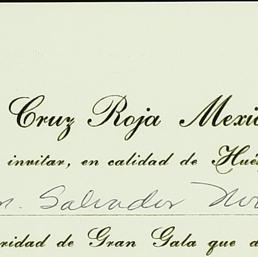 Cruz Roja Mexic
invitar, en calidad de Hué
n. Salvador No
ridad de Gran Gala que a